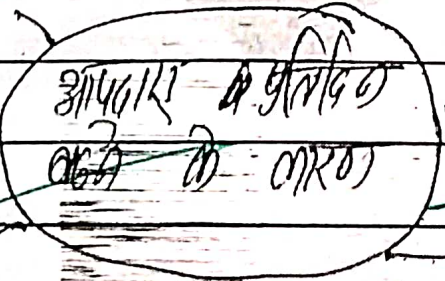 आपदाएं के प्रतिदिन
बढने के कारण